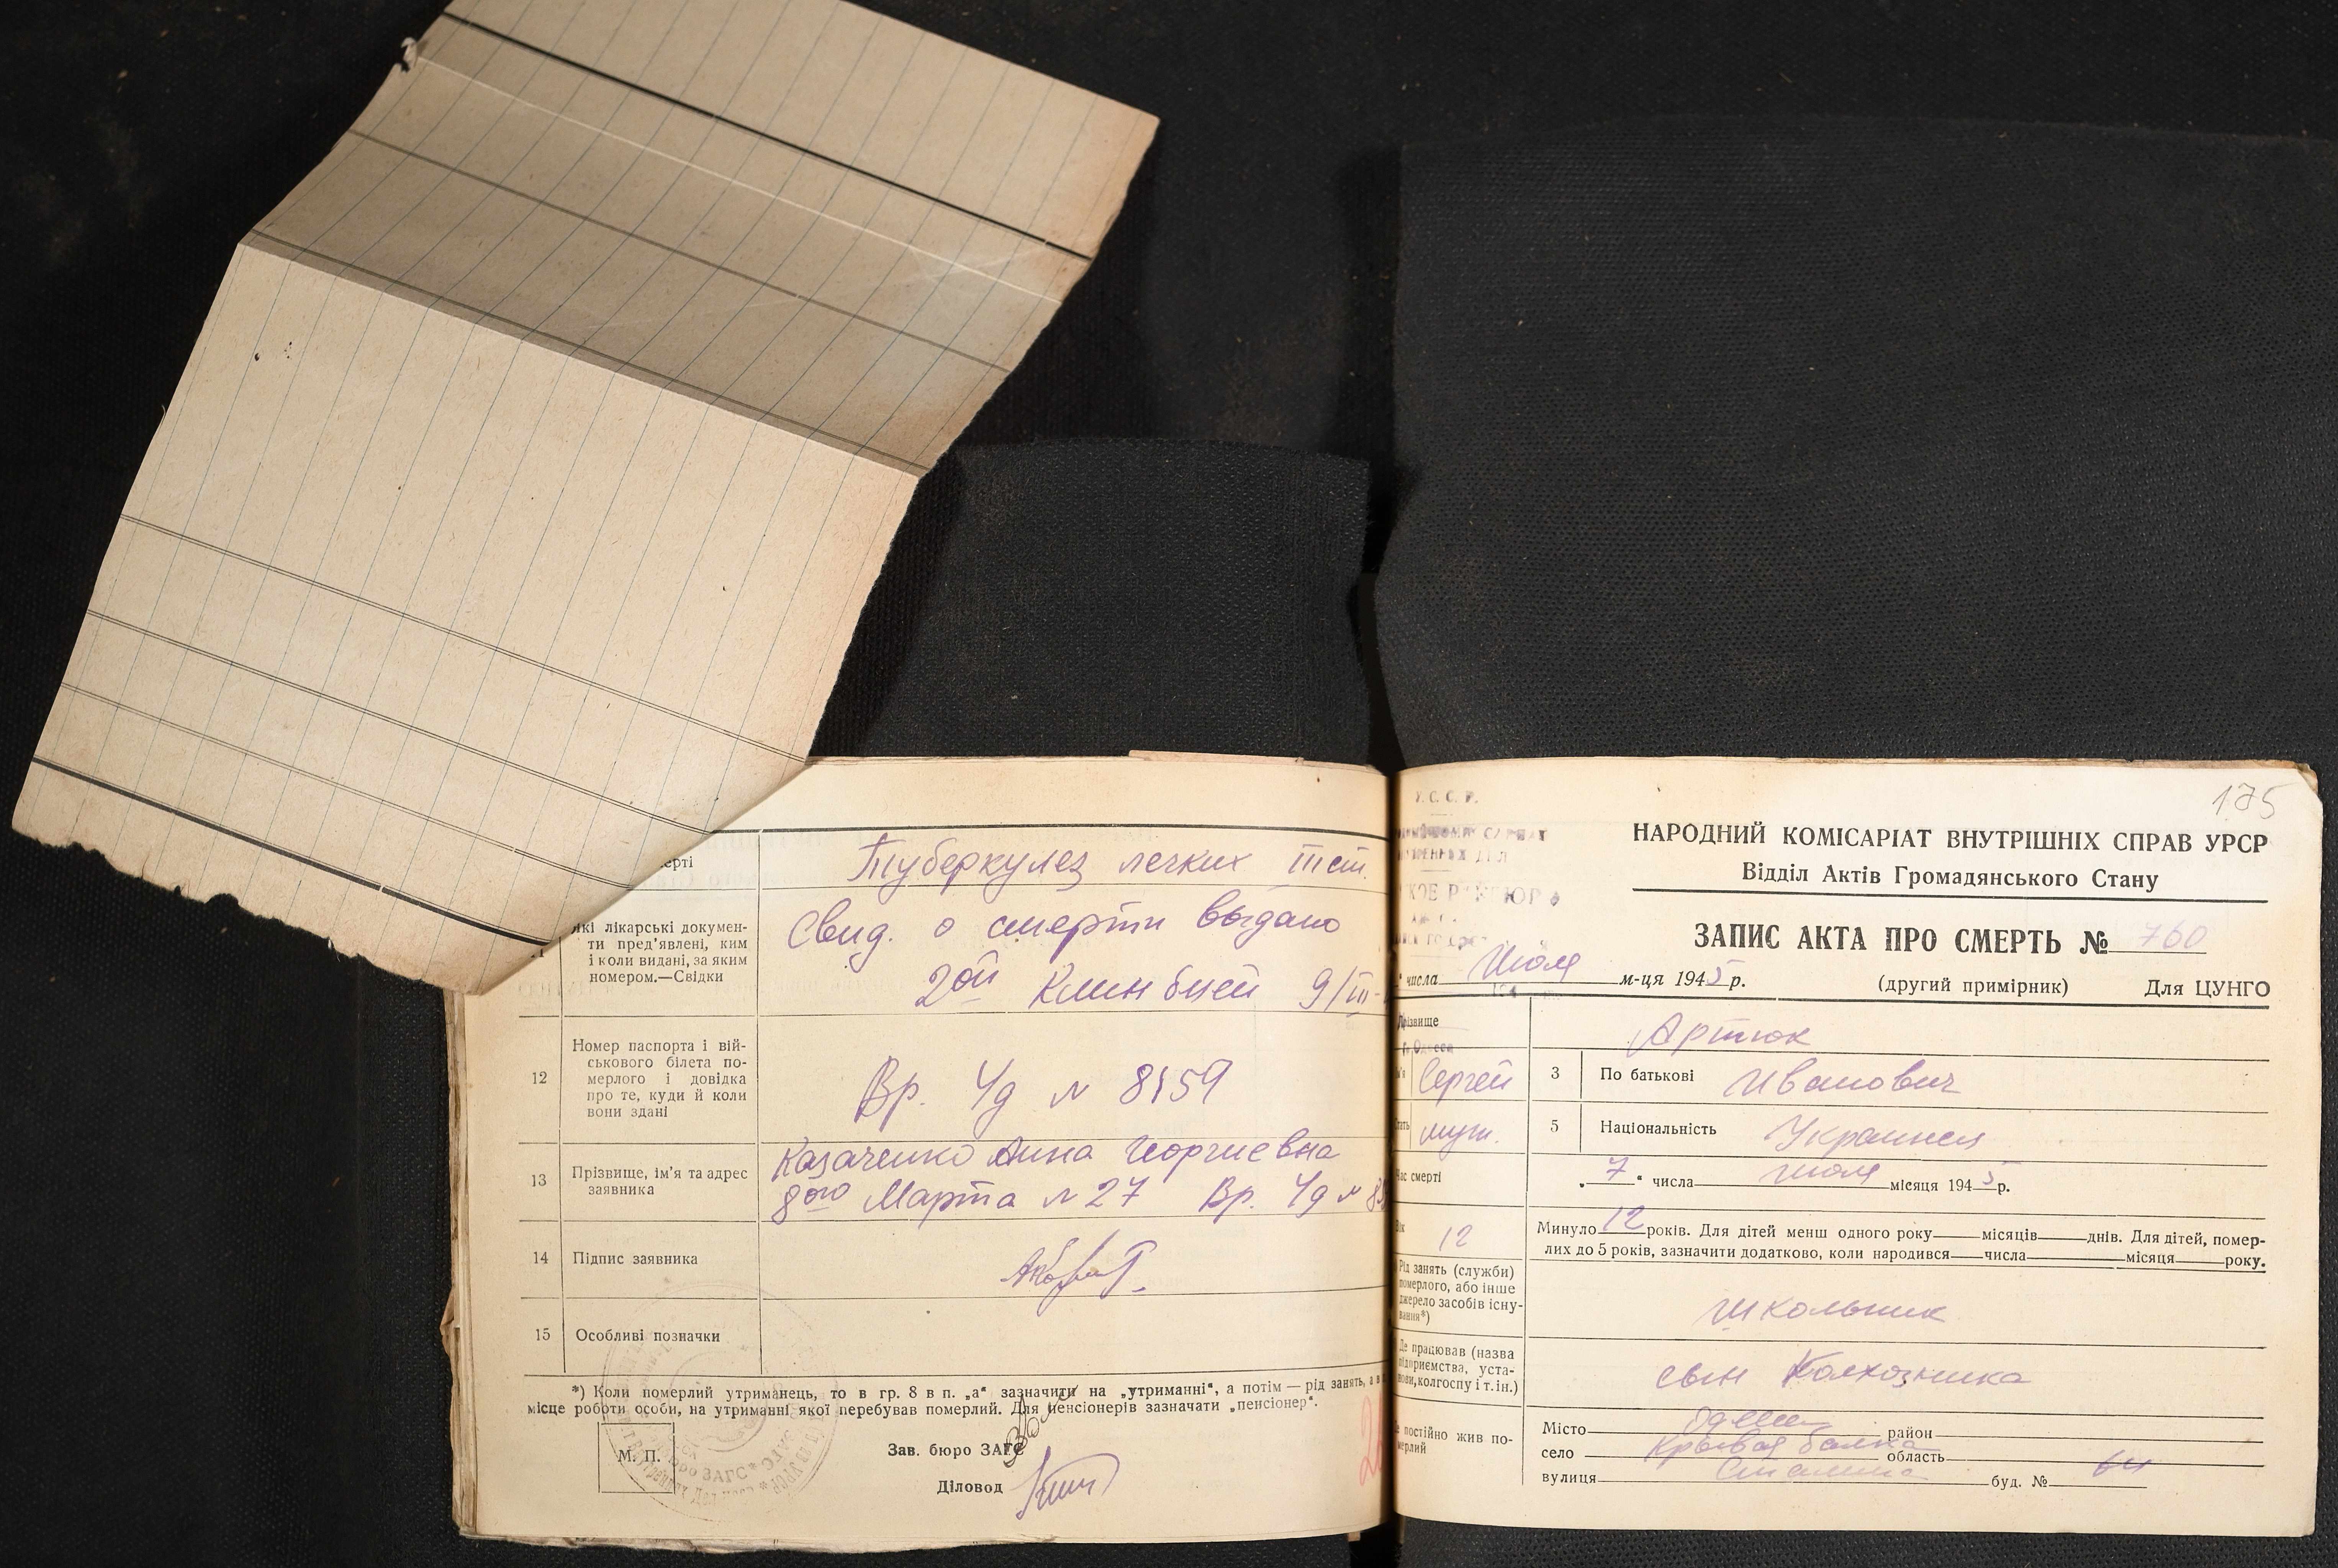 ерті
Туберкулез легких III ст.
які лікарські докумен-
ти пред'явлені, ким
і коли видані, за яким
номером.—Свідки
Свид. о смерти выдано
2ой Клин б-цей 9/III-
12
Номер паспорта і вій-
ськового білета по-
мерлого і довідка
про те, куди й коли
вони здані
Вр. Уд № 8159
13
Прізвище, ім'я та адрес
заявника
Казаченко Анна Георгиевна
8ого Марта № 27 Вр. Уд №
14
Підпис заявника
15
Особливі позначки
*) Коли померлий утриманець, то в гр. 8 в п. „а" зазначити на „утриманні", а потім — рід занять, а в
місце роботи особи, на утриманні якої перебував померлий. Для пенсіонерів зазначати „пенсіонер".
М. П.
Зав. бюро ЗАГС
Діловод
175
У.С.С.Р.
НАРОДНИЙ КОМІСАРІАТ ВНУТРІШНІХ СПРАВ УРСР
Відділ Актів Громадянського Стану
ЗАПИС АКТА ПРО СМЕРТЬ № 760
числа Июля м-ця 1945 р. (другий примірник) Для ЦУНГО
Прізвище
Артюк
г. Одесса
Сергей
3 По батькові Иванович
муж.
5 Національність Украинец
Час смерті
„ 7 " числа июля місяця 1945 р.
12
Минуло 12 років. Для дітей менш одного року місяців днів. Для дітей, помер-
лих до 5 років, зазначити додатково, коли народився числа місяця року.
Рід занять (служби)
померлого, або інше
джерело засобів існу-
вання*)
Школьник
Де працював (назва
підприємства, уста-
нови, колгоспу і т.ін.)
сын Колхозника
Де постійно жив по-
мерлий
Місто Одесса район
село Кривая балка область
вулиця Сталина буд. № 64